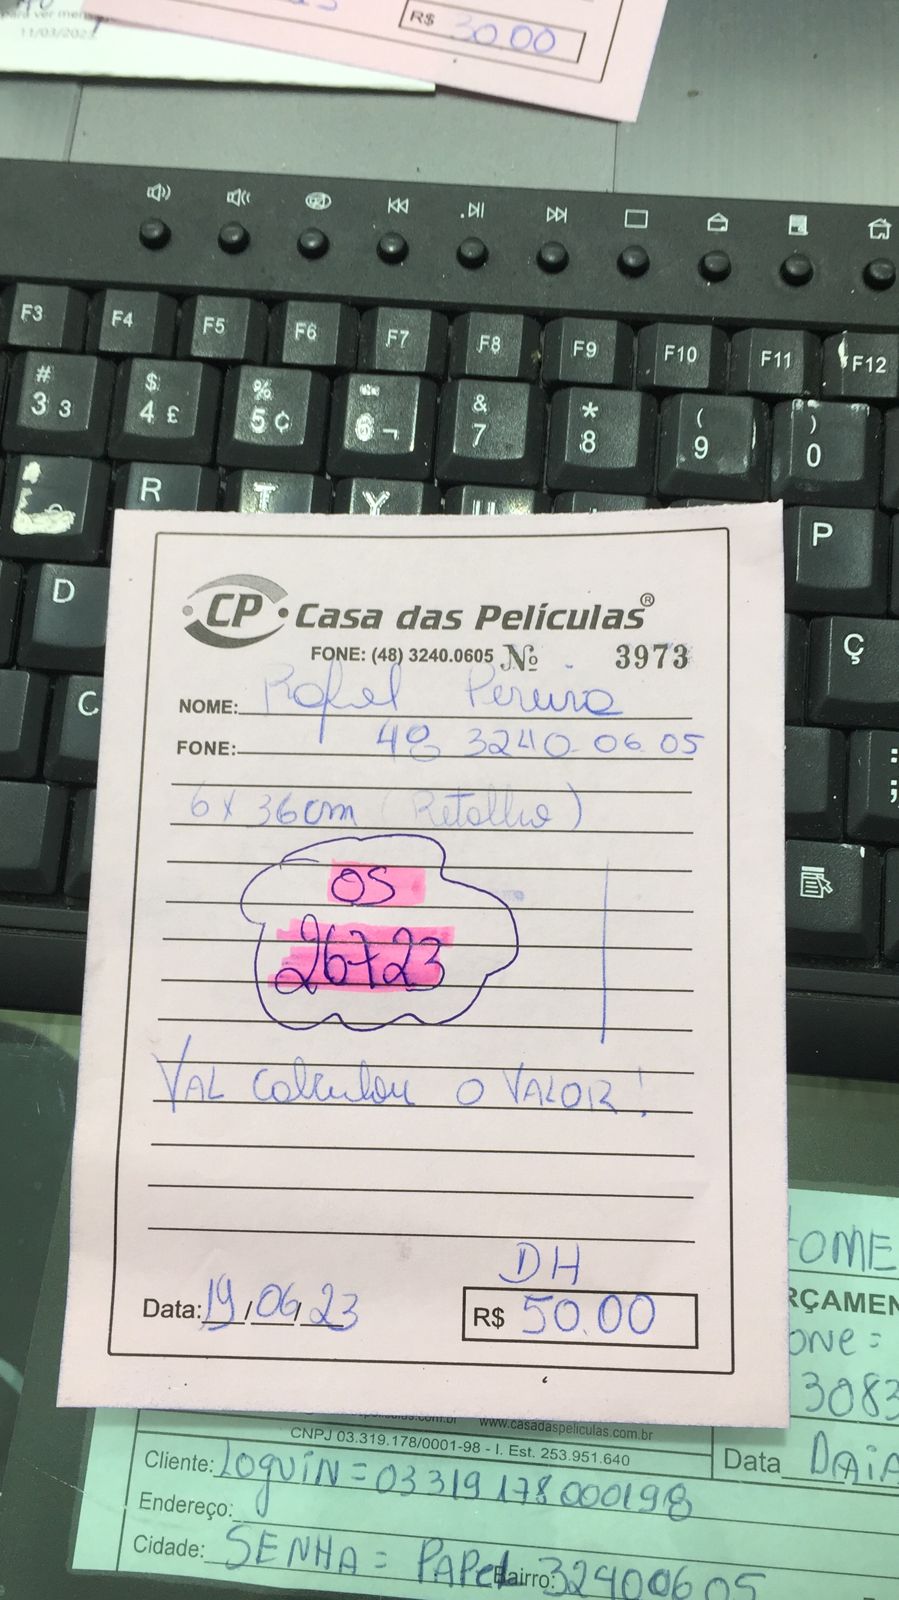 11/03/2023
R$ 30.00
F3 F4 F5 F6 F7 F8 F9 F10 F11 F12
# $ % & * ( )
3 3 4 £ 5 ¢ 6 ¬ 7 8 9 0
R T Y U P
D Ç
C : ;
CP Casa das Películas®
FONE: (48) 3240.0605 Nº 3973
NOME: Rafael Pereira
FONE: 48 3240.06 05
6 x 36cm (Retalho)
OS
26723
VAL calculou o VALOR!
DH
Data: 19/06/23 R$ 50.00
OME
RÇAMEN
one =
3083
www.casadaspeliculas.com.br
CNPJ 03.319.178/0001-98 - I. Est. 253.951.640
Data DAiA
Cliente: Loguin = 03319178000198
Endereço:
Cidade: SENHA = PAPel Bairro: 32400605